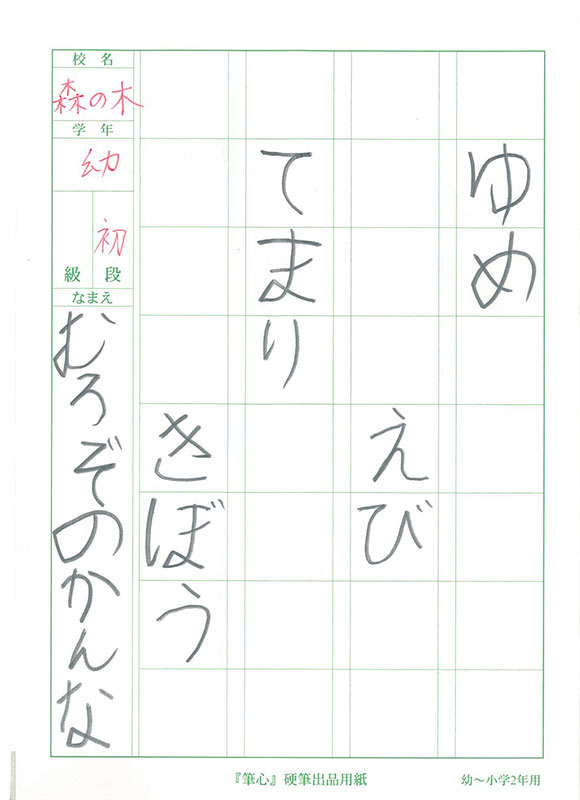 ゆめ
えび
てまり
きぼう
校名
森の木
学年
幼
初
級 段
なまえ
むろぞのかんな
『筆心』硬筆出品用紙
幼〜小学2年用